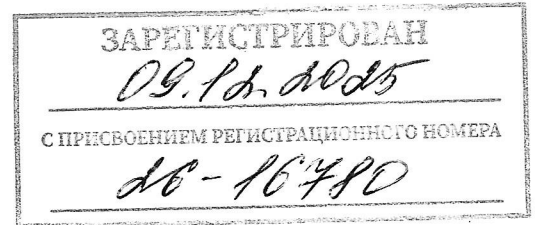 ЗАРЕГИСТРИРОВАН
09.12.2025
С ПРИСВОЕНИЕМ РЕГИСТРАЦИОННОГО НОМЕРА
26-16780